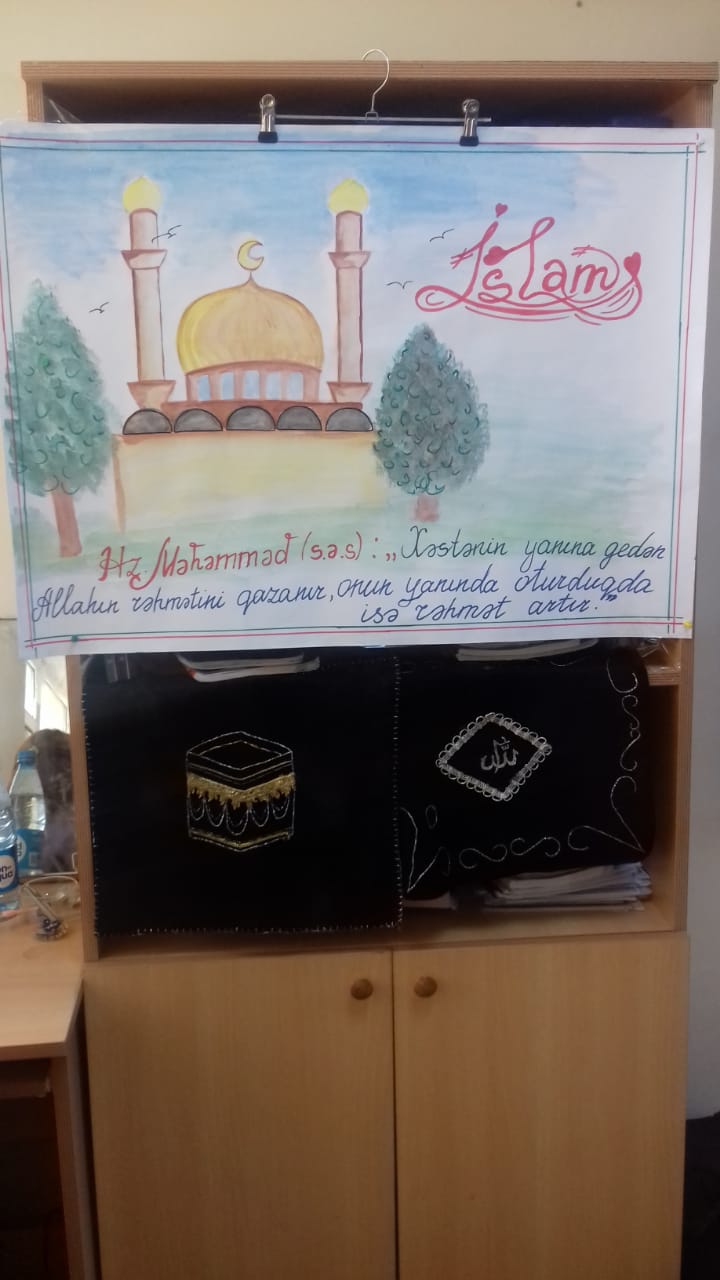 İslam
Hz. Məhəmməd (s.ə.s) : „Xəstənin yanına gedən
Allahın rəhmətini qazanır, onun yanında oturduqda
isə rəhmət artır.”
الله